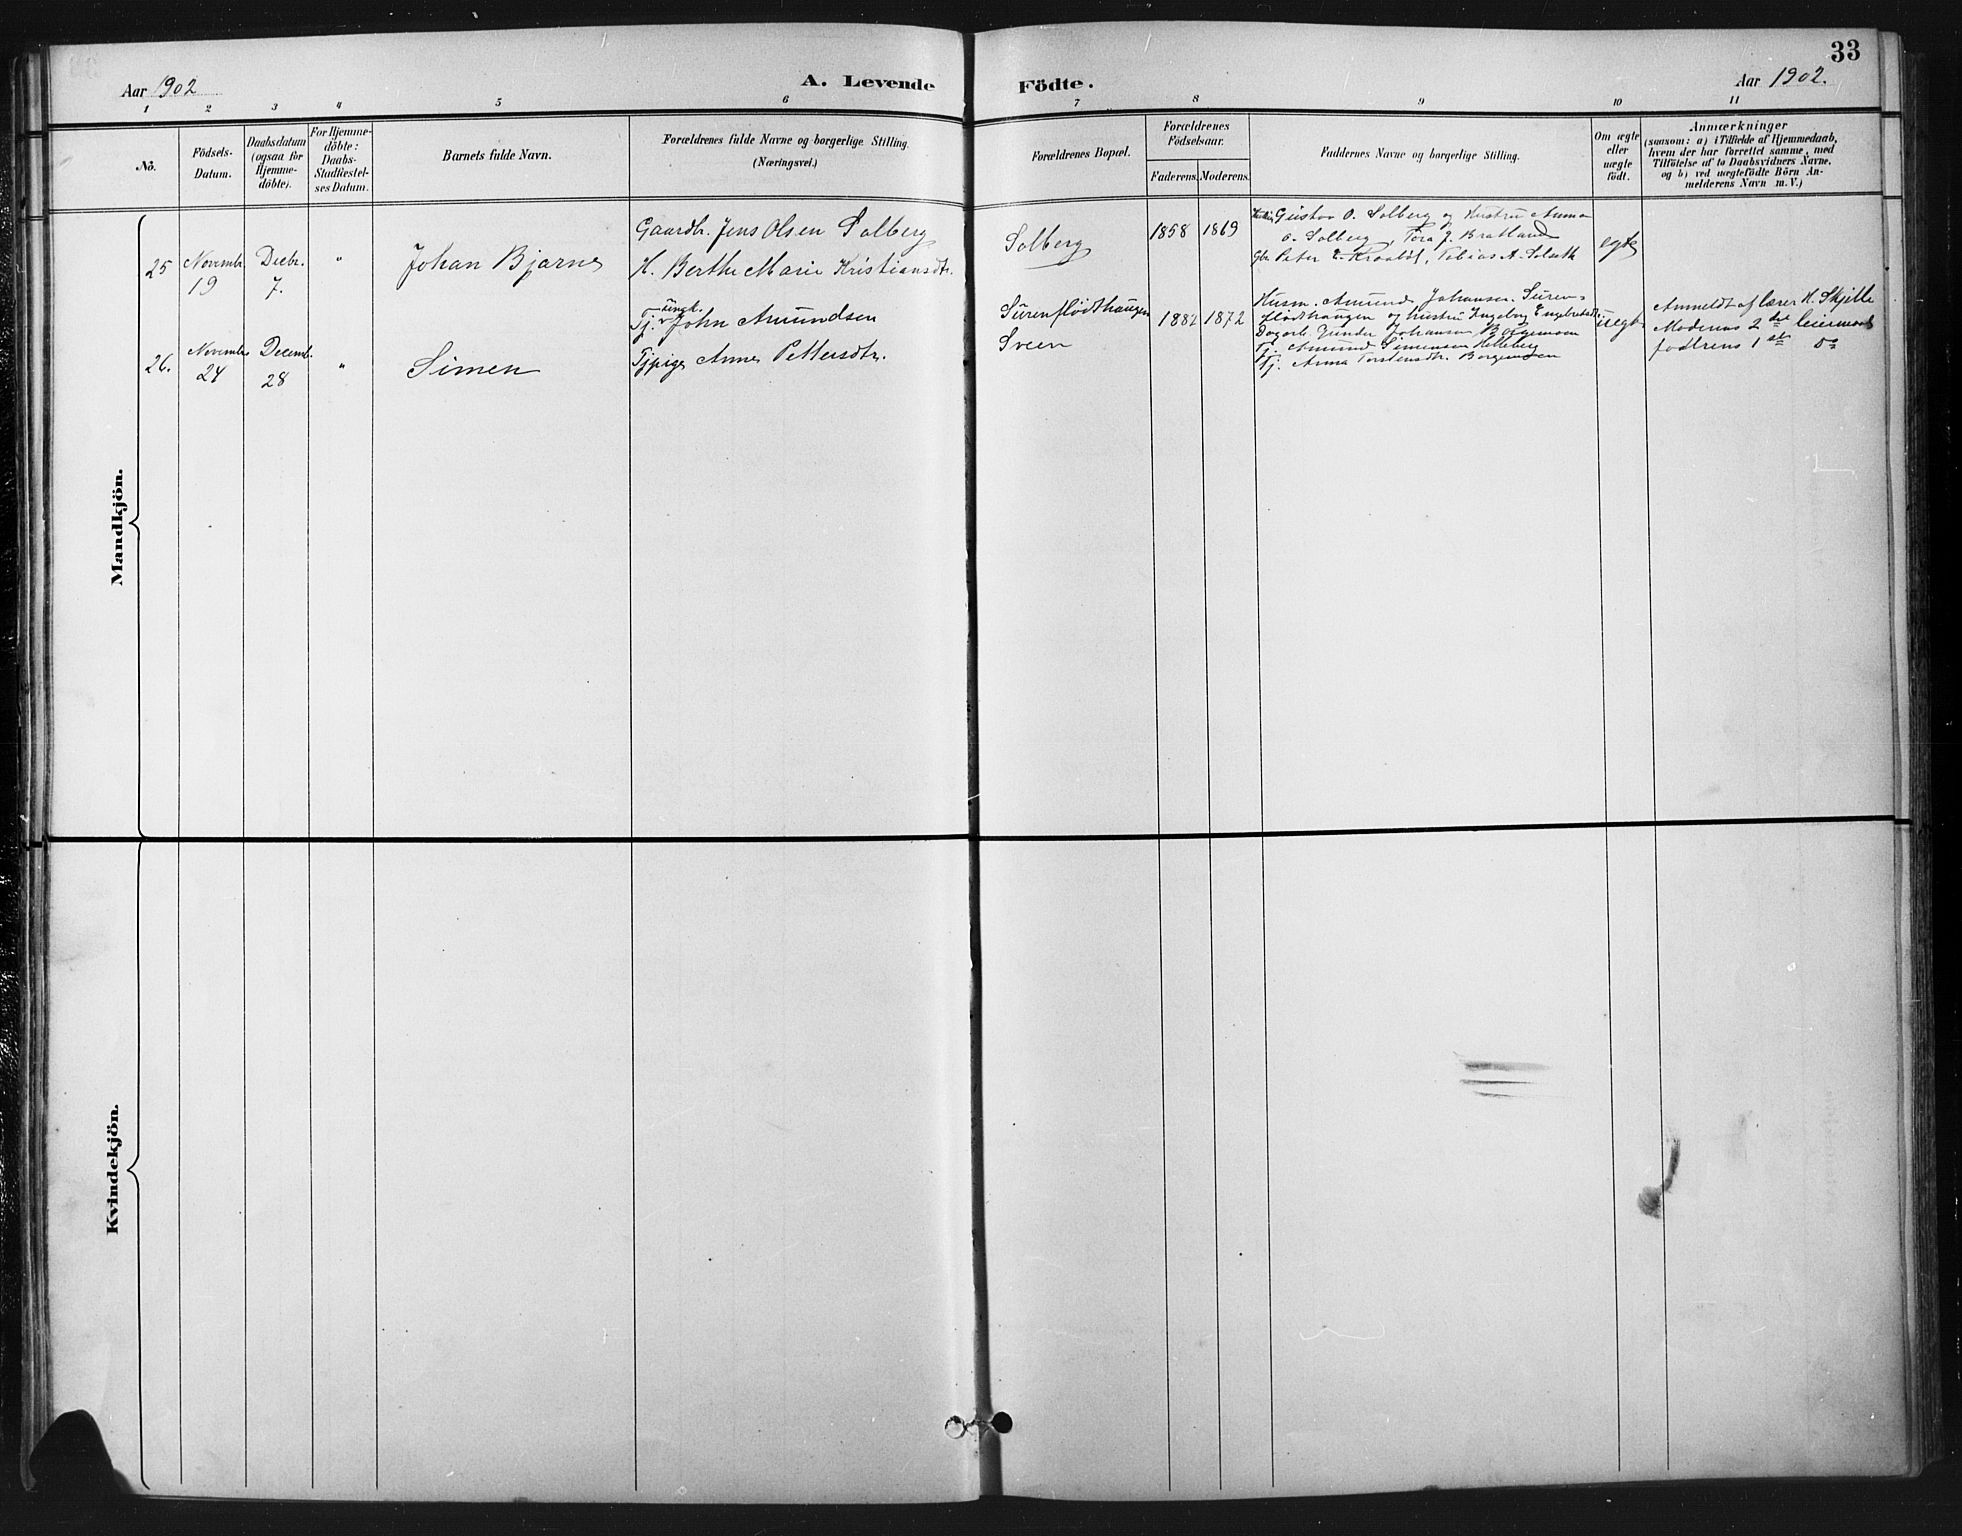 33
Aar 1902
A. Levende
Födte.
Aar 1902.
1 2 3 4 5 6 7 8 9 10 11
No.
Födsels-
Datum.
Daabsdatum
(ogsaa for
Hjemme-
döbte).
For Hjemme-
döbte:
Daabs-
Stadfæstel-
ses Datum.
Barnets fulde Navn.
Forældrenes fulde Navne og borgerlige Stilling.
(Næringsvei.)
Forældrenes Bopæl.
Forældrenes
Födselsaar.
Faderens. Moderens.
Faddernes Navne og borgerlige Stilling.
Om ægte
eller
uægte
födt.
Anmærkninger
(saasom: a) i Tilfælde af Hjemmedaab,
hvem der har forrettet samme, med
Tilföielse af to Daabsvidners Navne,
og b) ved uægtefödte Börn An-
melderens Navn m. V.)
Mandkjön.
25
Novembr.
19
Decbr.
7.
"
Johan Bjarne
Gaardbr. Jens Olsen Solberg
H. Berthe Marie Kristiansdtr.
Solberg
1858 1869
Gustav O. Solberg og Hustru Anna
O. Solberg, Tora J. Bratland
Gbr. Peter E. , Tobias A. Solseth
egte
26.
Novembr
24
Decemb.
28
"
Simen
Ungk.
Tj. John Amundsen
Tjpige Anne Pettersdtr.
Surenflødthaugen
Sveen
1882 1872
Husm. Amund Johansen Suren-
flødthaugen og hustru Ingeborg Engebretsdtr.
Dagarb. Gunder Johansen Borgemoen
Tj. Amund Simensen Helleberg
Tj. Anna Torstensdtr. Borgemoen
uegte
Anmeldt af lærer H. Skjelle
Moderens 2 det leiermaal
faderens 1 ste do
Kvindekjön.